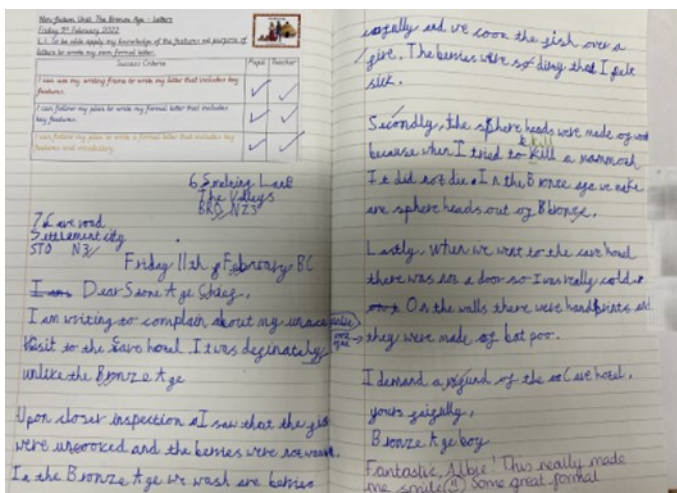 Non-fiction Unit: The Bronze Age - Letters
Friday 11th February 2022
L.I. To be able apply my knowledge of the features and purpose of
letters to write my own formal letter.
Success Criteria Pupil Teacher
I can use my writing frame to write my letter that includes key
features.
I can follow my plan to write my formal letter that includes
key features.
I can follow my plan to write a formal letter that includes key
features and vocabulary.
6 Smelting Lane
The Valleys
BRO NZ3
7 Cave road
Settlement city
STO N3
Friday 11th February BC
I am Dear Stone Age Chief,
I am writing to complain about my
visit to the Cave hotel. It was definately
unlike the Bronze Age
Upon closer inspection I saw that the fish
were uncooked and the berries were not wash.
In the Bronze Age we wash are berries
and we cook the fish over a
fire. The berries were so dirty that I felt
sick.
Secondly, the sphere heads were made of
because when I tried to kill a mammoth
kill
It did not die. In the Bronze age we make
are sphere heads out of Bronze.
Lastly, when we went to the cave hotel
there was not a door so I was really cold.
On the walls there were handprints and
they were made of bat poo.
I demand a refund of the Cave hotel.
yours faifully,
Bronze Age boy
Fantastic, Albie! This really made
me smile Some great formal